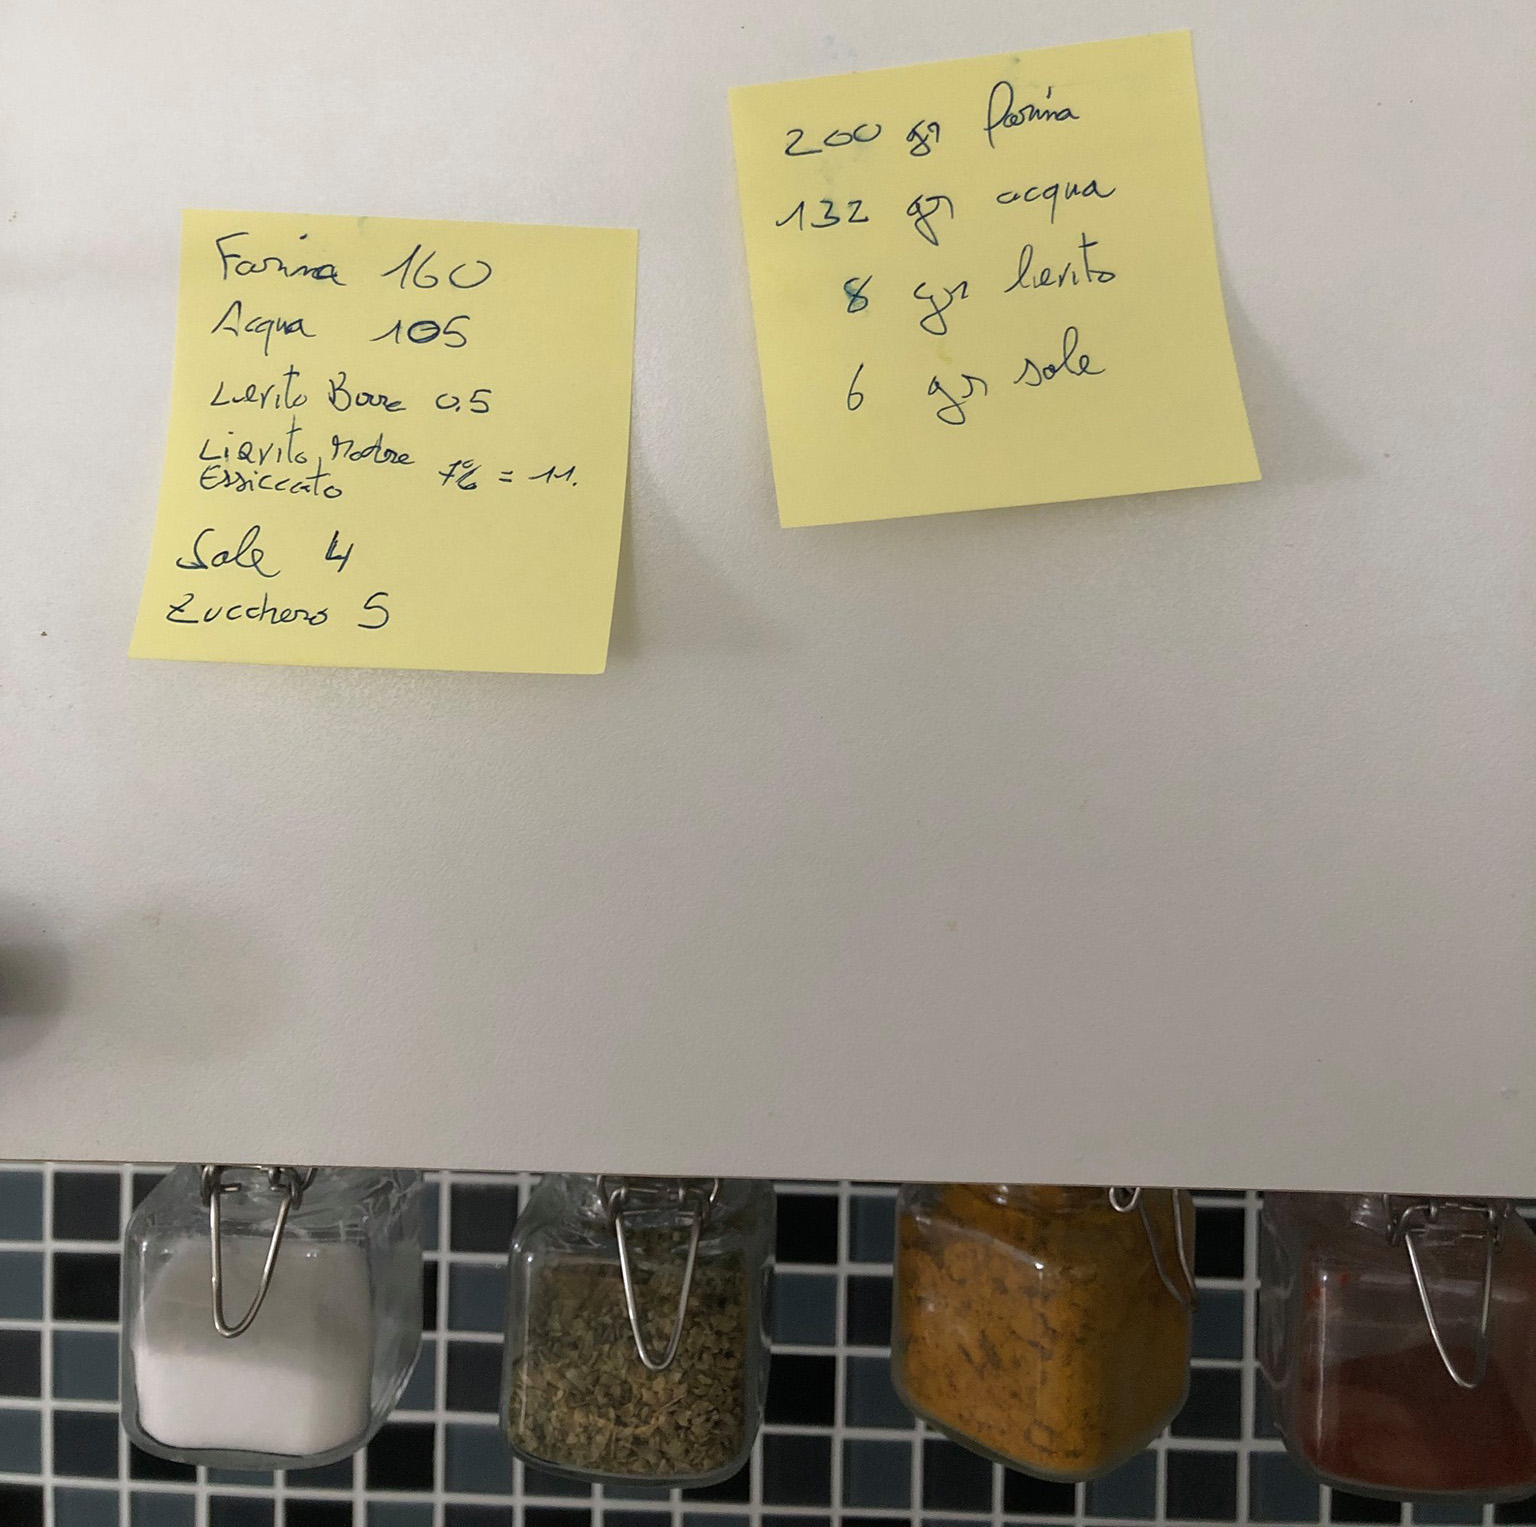 Farina 160
Acqua 105
Lievito Birra 0.5
Lievito Madre
Essiccato 7% = 11.
Sale 4
Zucchero 5
200 gr farina
132 gr acqua
8 gr lievito
6 gr sale